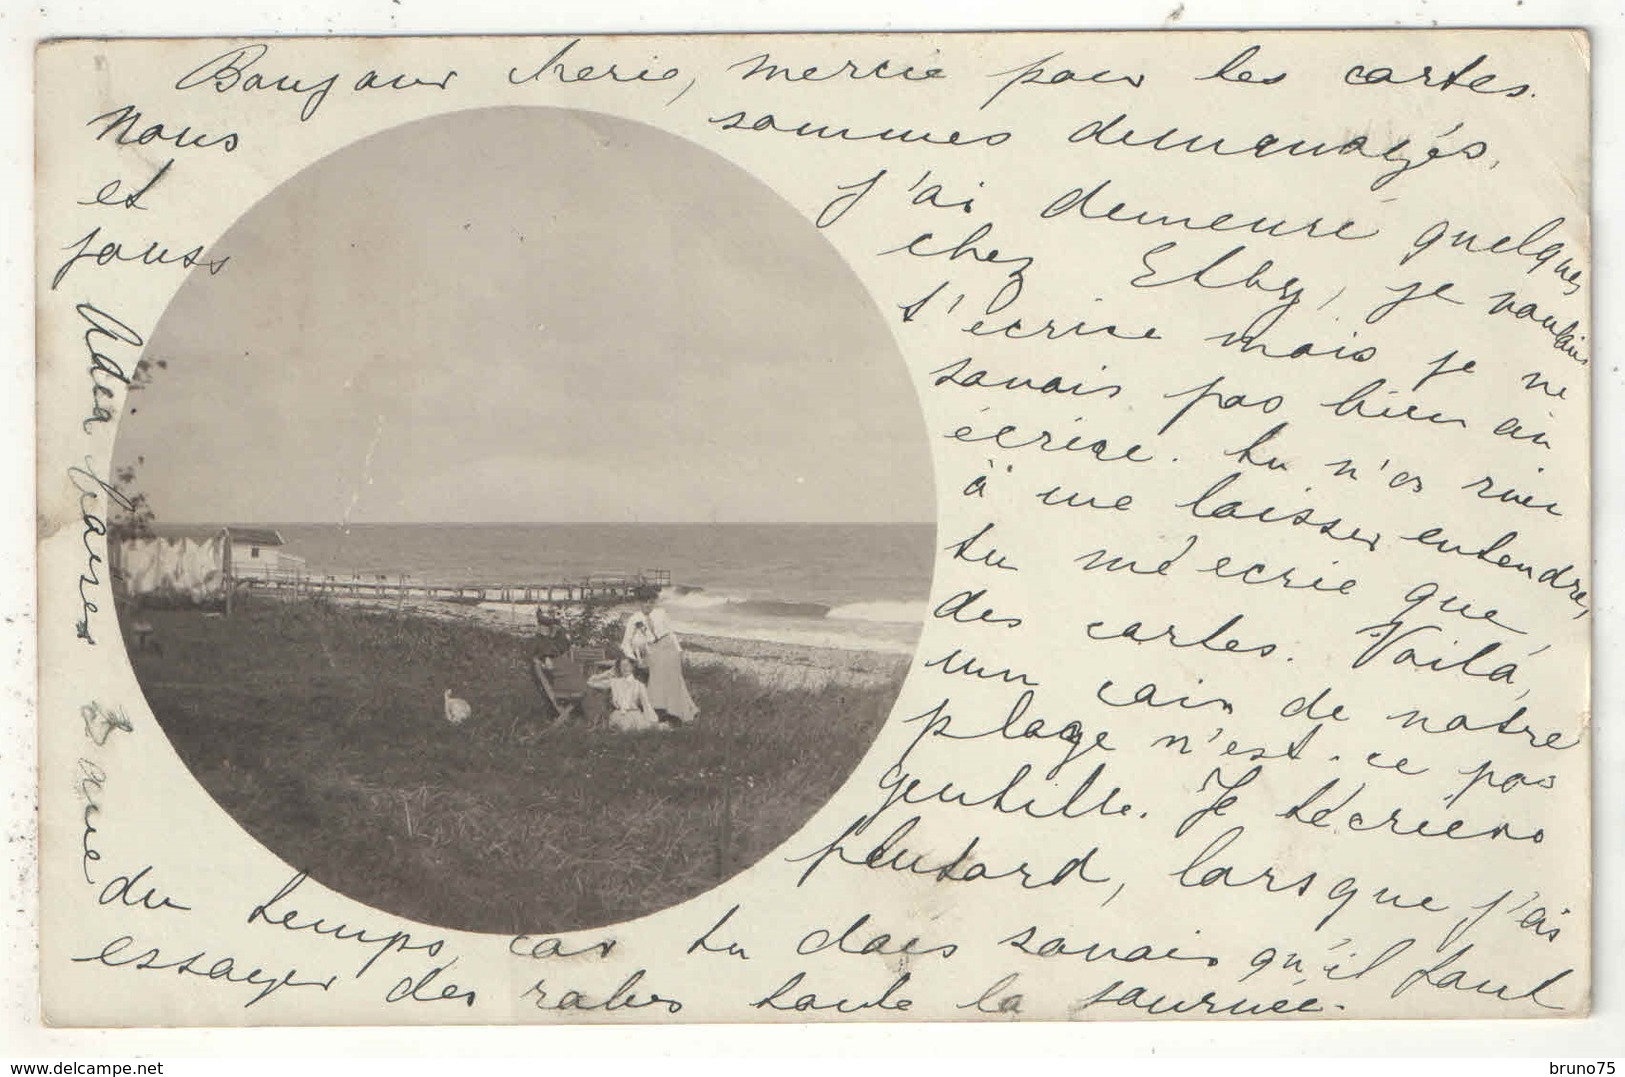 Bonjour cherie, mercie pour les cartes.
Nous sommes demenagés,
et j'ai demeuré quelques
jouss chez Elby, je voulais
t'ecrire mais je ne
savais pas bien où
écrire. tu n'as rien
à me laisser entendre,
tu me ecrie que
des cartes. Voilá,
unn coin de notre
plage n'est-ce pas
gentille. Je técrieras
plutard, lorsque j'ais
du temps, car tu dois savais qu'il faut
essayer des robes toute la journée.
Adea
www.delcampe.net
bruno75